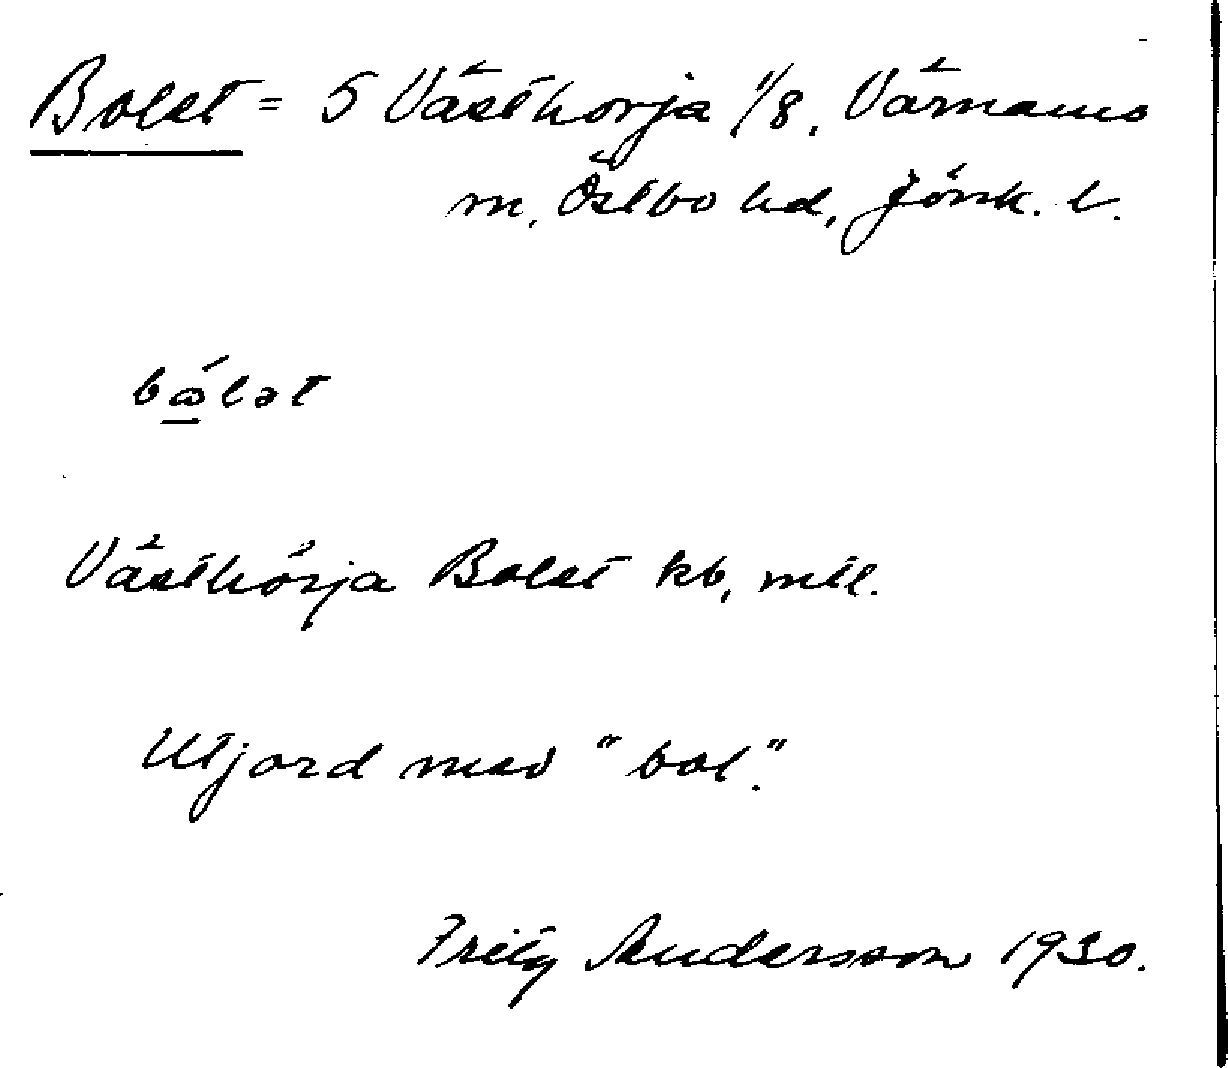 Bolet = 5 Västhorja 1/8, Värnamo
m, Östbo hd, Jönk. l.
bώlət
Västhorja Bolet kb, mtl.
Utjord med "bol".
Fritz Andersson 1930.